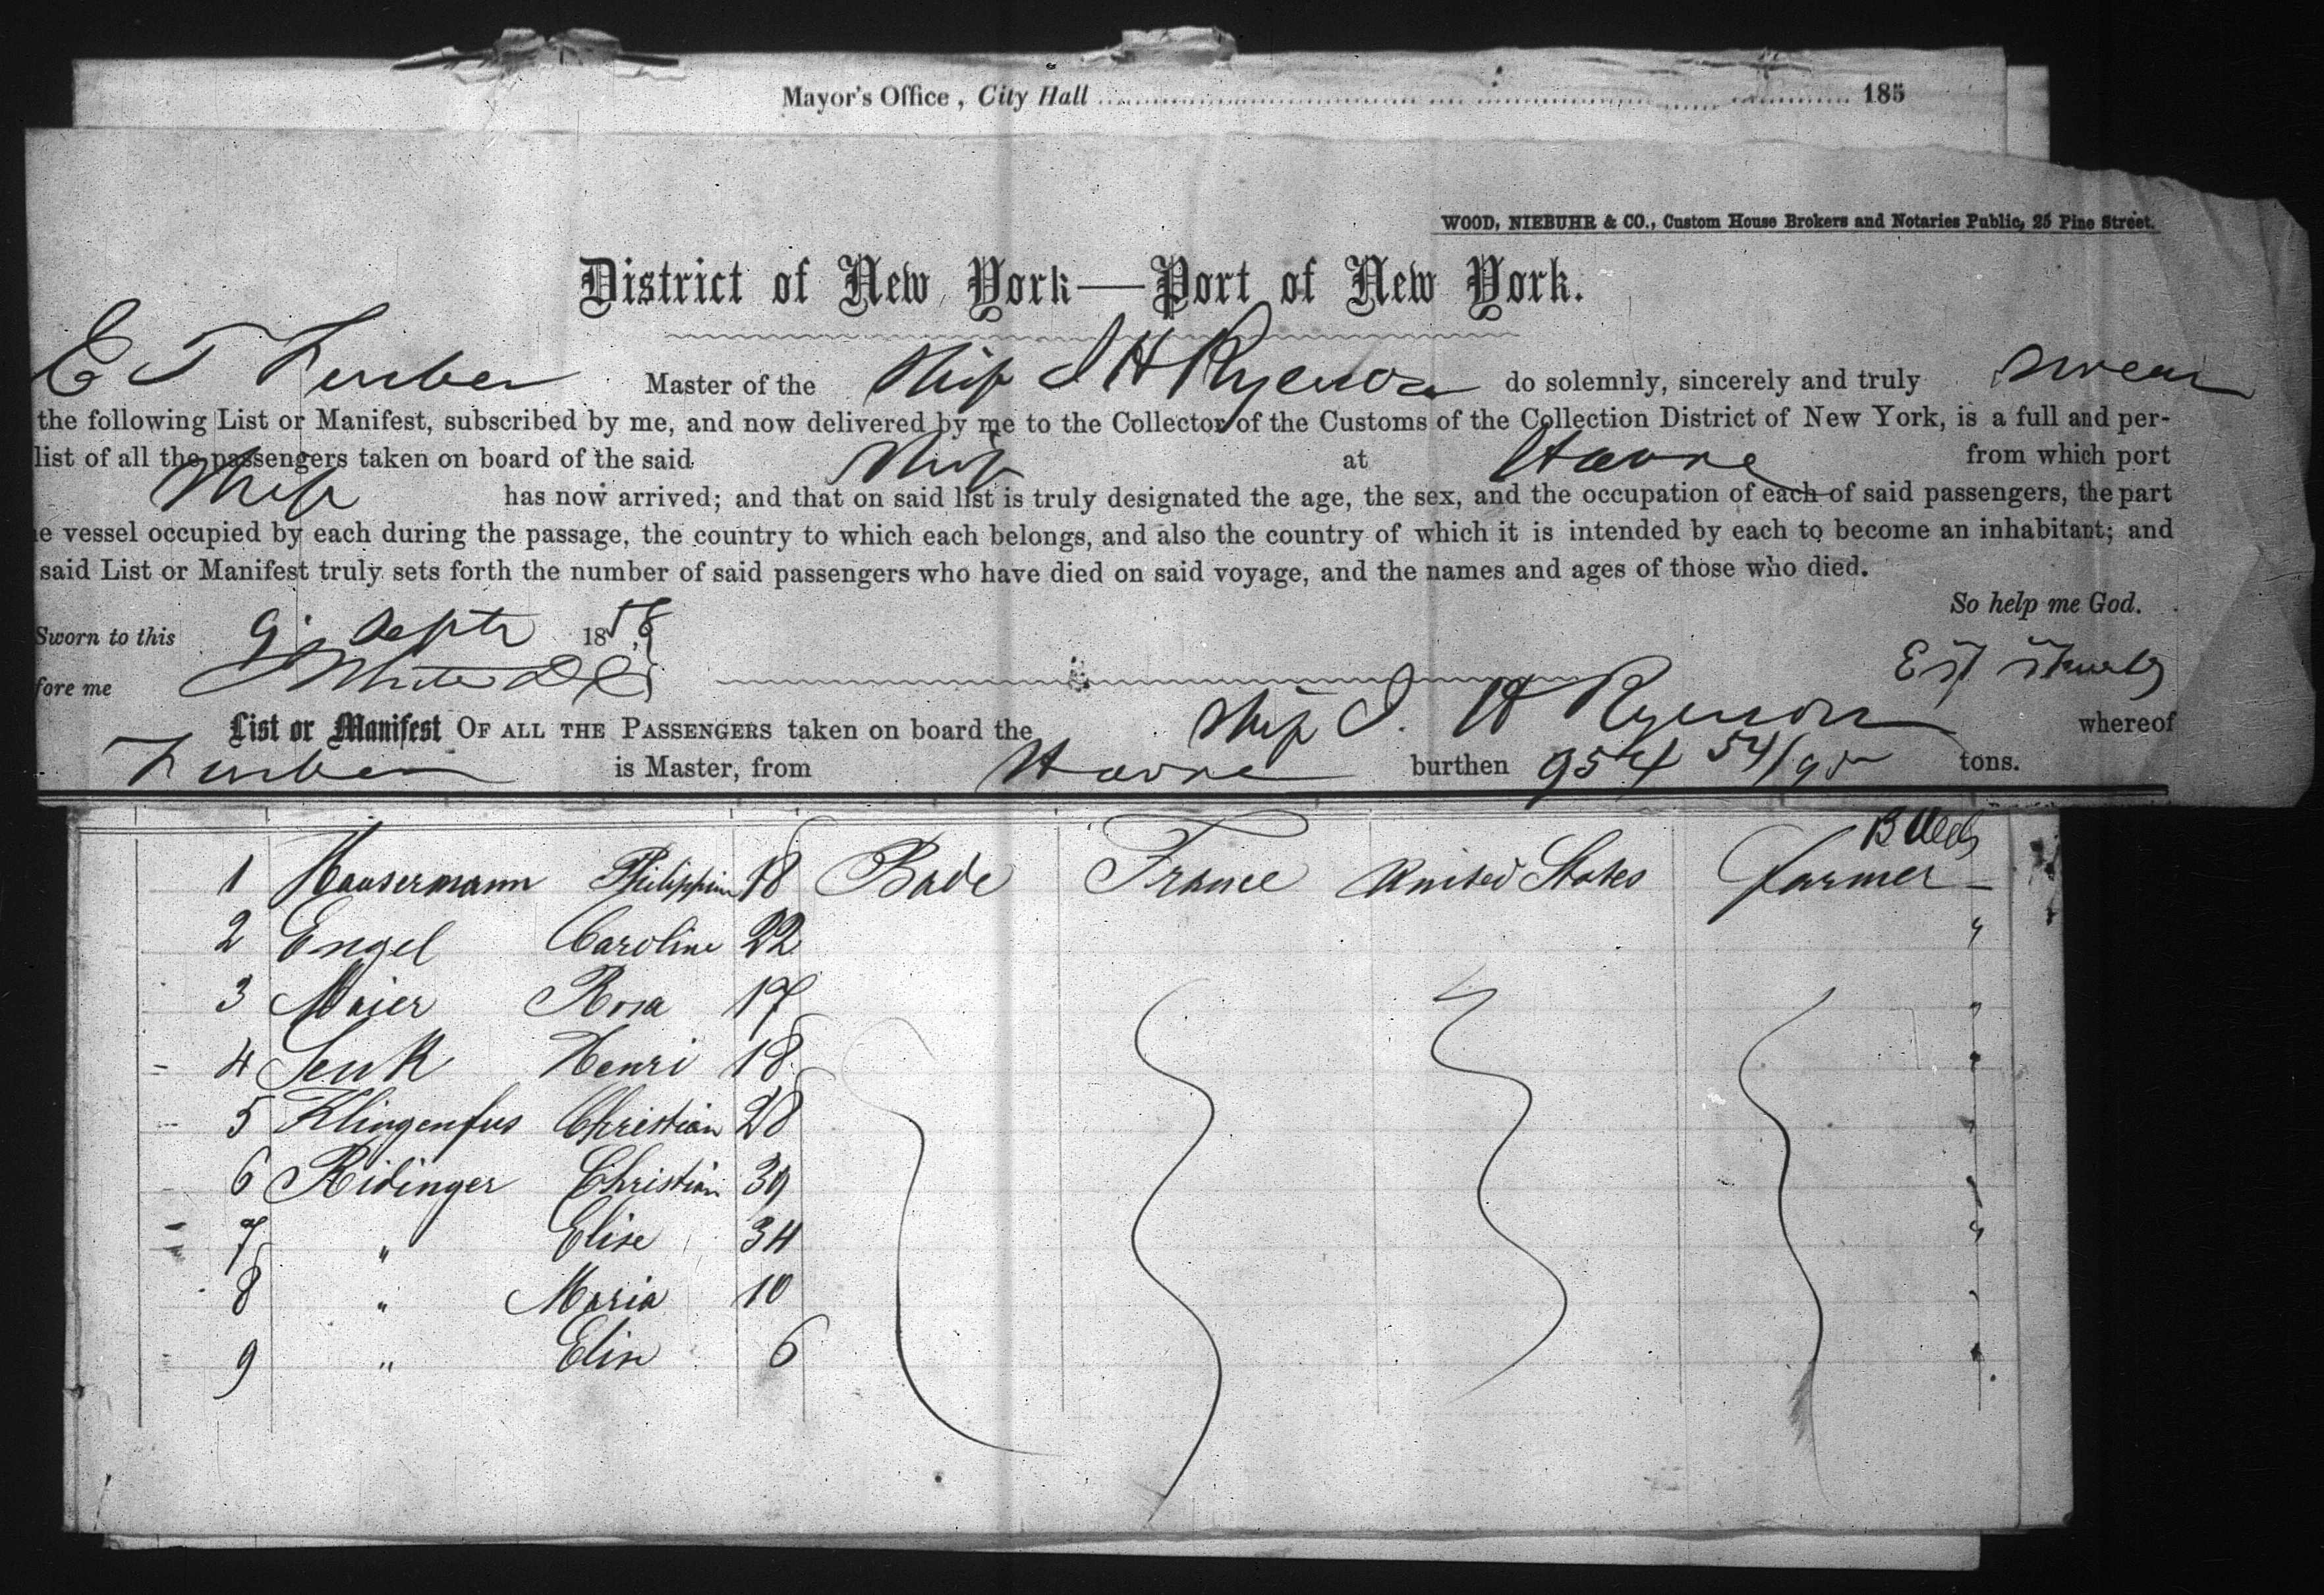 Mayor's Office, City Hall 185
WOOD, NIEBUHR & CO., Custom House Brokers and Notaries Public, 25 Pine Street.
District of New York—Port of New York.
E T Master of the Ship J H Ryerson do solemnly, sincerely and truly swear
the following List or Manifest, subscribed by me, and now delivered by me to the Collector of the Customs of the Collection District of New York, is a full and per-
list of all the passengers taken on board of the said Ship at Havre from which port
Ship has now arrived; and that on said list is truly designated the age, the sex, and the occupation of each of said passengers, the part
e vessel occupied by each during the passage, the country to which each belongs, and also the country of which it is intended by each to become an inhabitant; and
said List or Manifest truly sets forth the number of said passengers who have died on said voyage, and the names and ages of those who died.
So help me God.
Sworn to this 9 Septr 1858
fore me
List or Manifest OF ALL THE PASSENGERS taken on board the Ship J. H Ryerson whereof
is Master, from Havre burthen 954 54/95 tons.
1 Hausermann Philippine 18 Bade France United States Farmer
2 Engel Caroline 22 "
3 Maier Rosa 17 "
4 Senk Henri 18 "
5 Klingenfus Christian 28 "
6 Ridinger Christian 39 "
7 " Elise 34 "
8 " Maria 10 "
9 " Elise 6 "